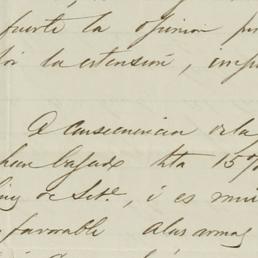 fuerte la opinion pr
por la estension, imp
A consecuencia de la
han bajado hta 15%
de Setb^e, i es mui
favorable a las armas